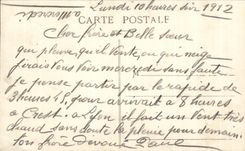 Lundi 10 heures soir 1912
CARTE POSTALE
Cher frère et Belle Soeur
qui pleuve, qu'il vente, ou qui neige
j'irais vous voir mercredi sans faute
je pense partir par le rapide de
3 heures 15, pour arriver à 8 heures
à Crest. à Lyon il fait un vent très
chaud sans doute la pluie pour demain.
Ton frère Dévoué